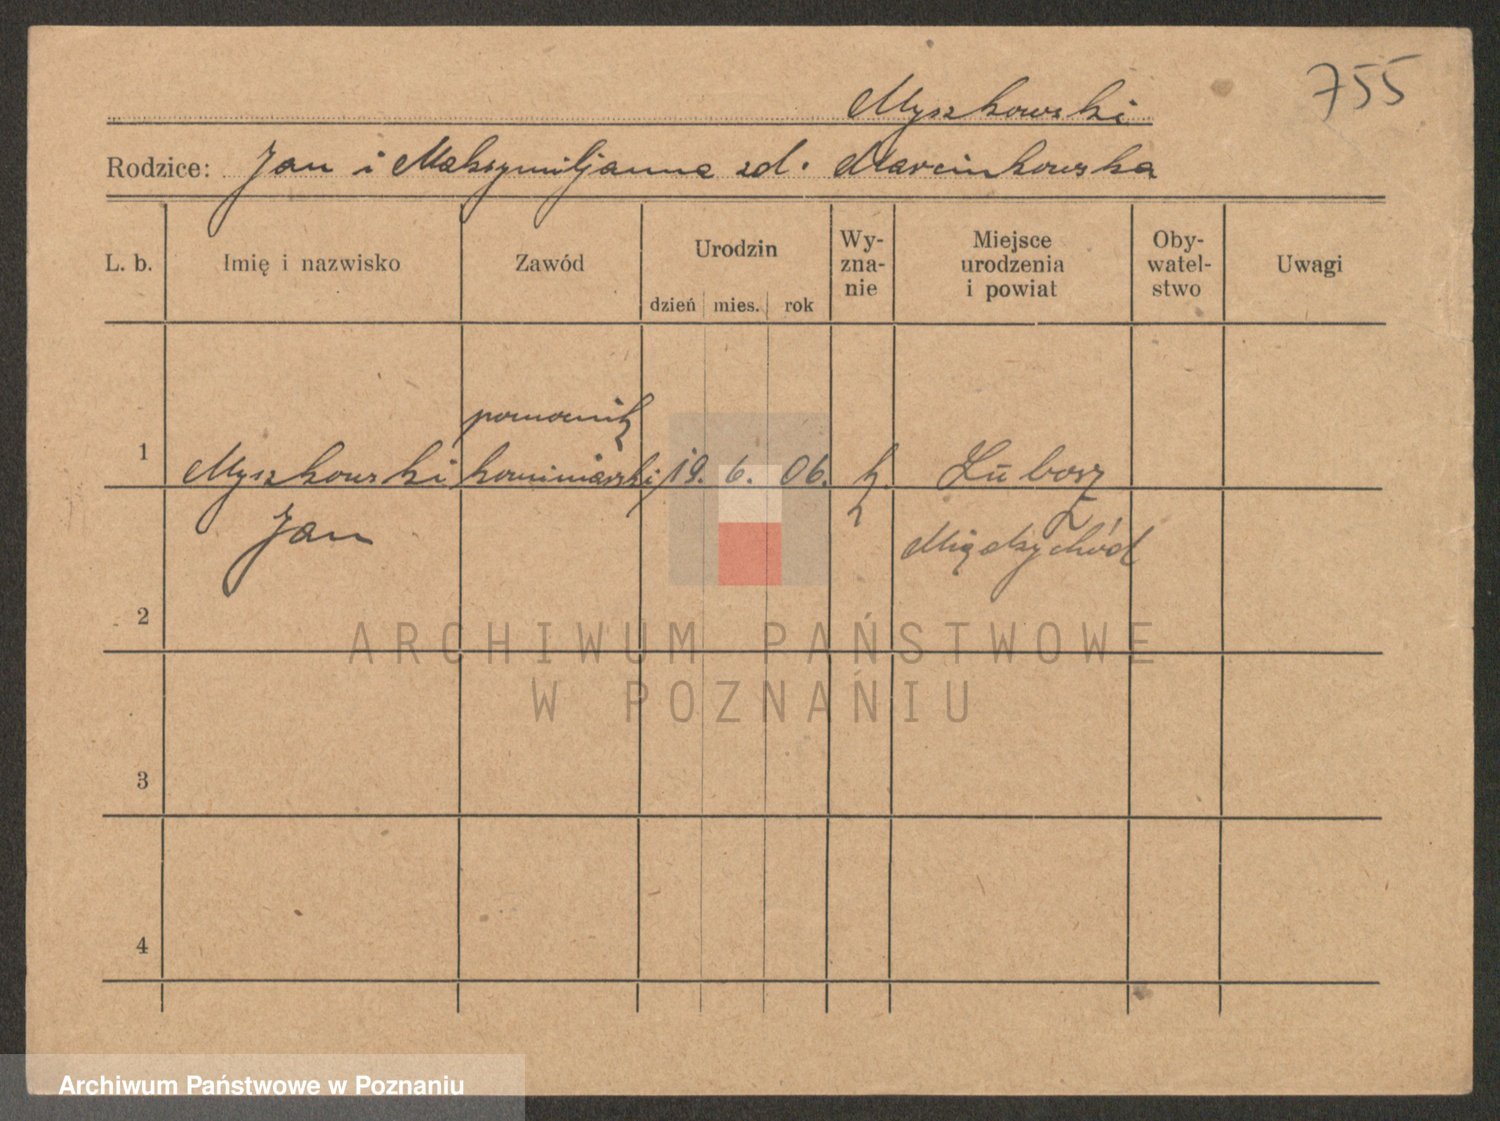 755
Myszkowski
Rodzice: Jan i Maksymiljanna zd. Marcinkowska
L. b. Imię i nazwisko Zawód Urodzin dzień mies. rok Wy-zna-nie Miejsce urodzenia i powiat Oby-watel-stwo Uwagi
pomocnik
1 Myszkowski kominiarski 19. 6. 06. k Lubosz
Jan Międzychód
2
ARCHIWUM PAŃSTWOWE
W POZNANIU
3
4
Archiwum Państwowe w Poznaniu